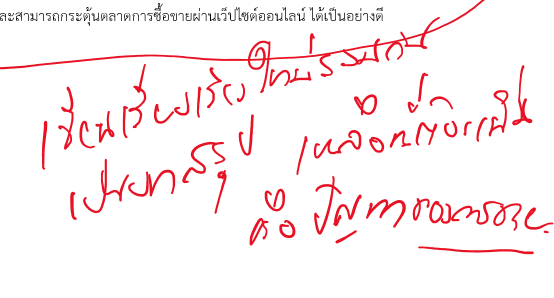 ละสามารถกระตุ้นตลาดการซื้อขายผ่านเว็ปไซต์ออนไลน์ ได้เป็นอย่างดี
เขียนเรียงเรียง ใหม่รวมกัน
เป็นบทสรุป เหลือ
คือ ปัญหาของการขาย